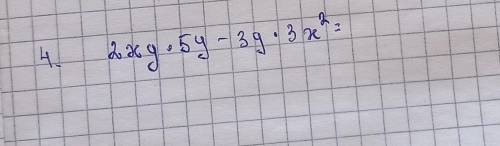 4. 2xy · 5y - 3y · 3x² =